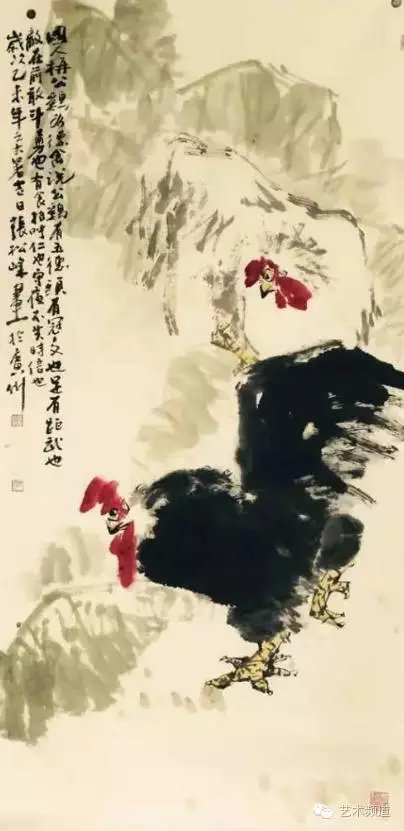 國人稱公鷄为德禽说公鷄有五德頭有冠文也足有距武也
敵在前敢斗勇也有食相呼仁也守夜不失時信也
歲次乙未年之大暑吉日張松峰畫於廣州
艺术频道